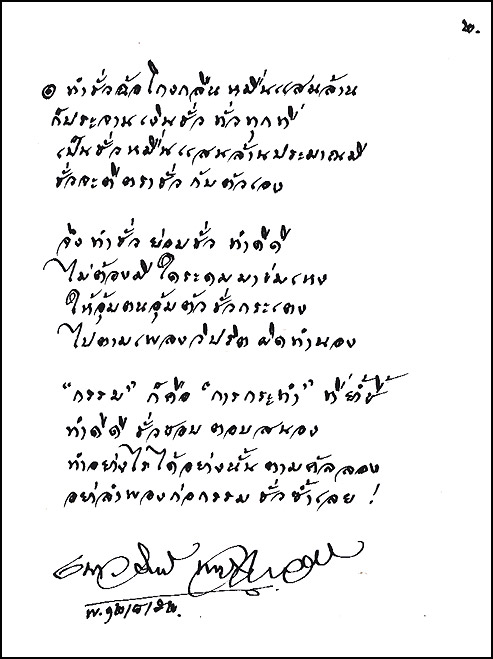 ๒.
๏ ทำชั่วฉ้อโกงกลืน หมื่นแสนล้าน
ก็ประจานเงินชั่ว ทั่วทุกที่
เป็นชั่วหมื่นแสนล้านประมาณมี
ชั่วจะตีตราชั่ว กับตัวเอง
จึงทำชั่ว ย่อมชั่ว ทำดีดี
ไม่ต้องมี ใครระดมมาข่มเหง
ให้อุ้มตนอุ้มตัวชั่วกระเตง
ไปตามเพลงวิปริตผิดทำนอง
"กรรม" ก็คือ "การกระทำ" ที่ย้ำชี้
ทำดีดี ชั่วชอบ ตอบสนอง
ทำอย่างไรได้อย่างนั้น ตามครรลอง
อย่าลำพองก่อกรรม ชั่วซ้ำเลย !